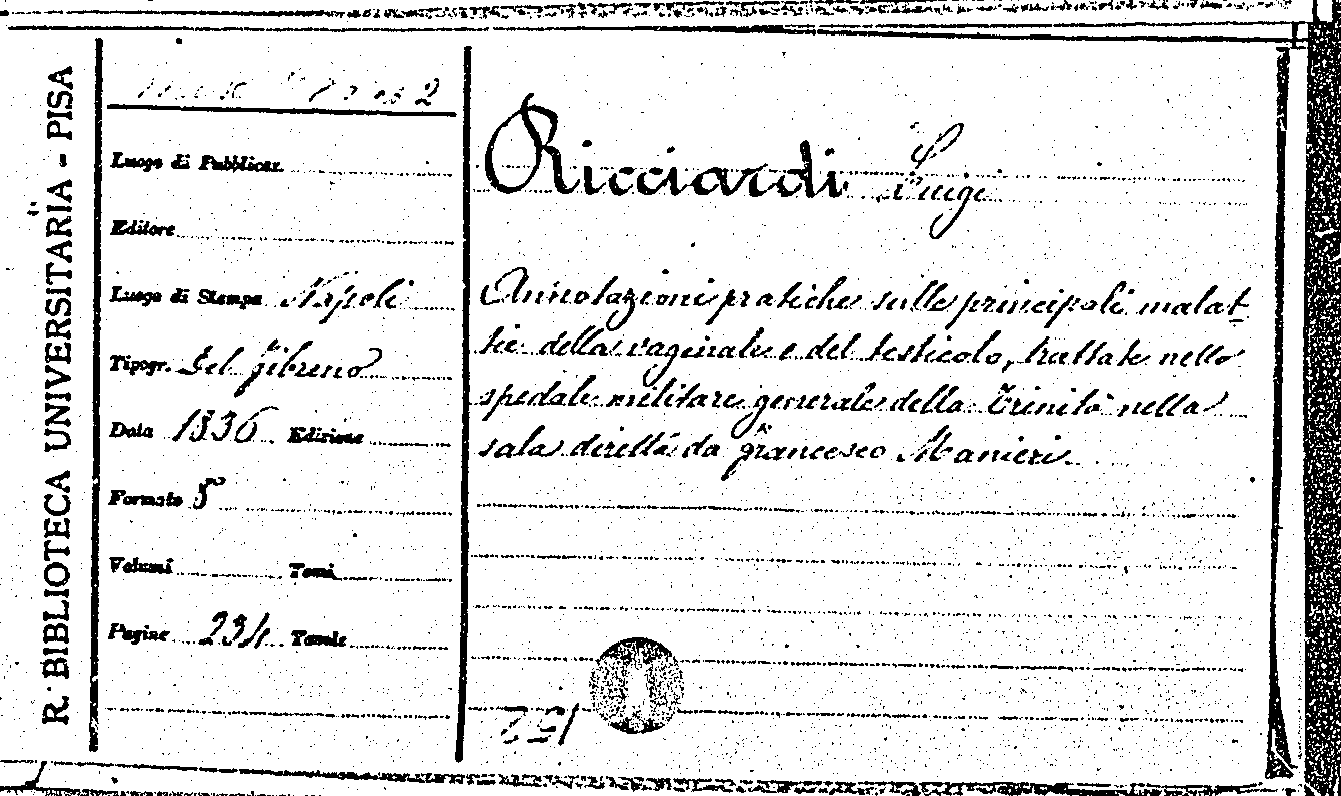 R. BIBLIOTECA UNIVERSITARIA - PISA
Luogo di Pubblicaz.
Editore
Luogo di Stampa Napoli
Tipogr. Del Fibreno
Data 1836 Edizione
Formato 8
Volumi Tomi
Pagine 234 Tavole
Ricciardi Luigi
Annotazioni pratiche sulle principali malat-
tie della vaginale e del testicolo, trattate nello
spedale militare generale della Trinità nella
sala diretta da Francesco Manieri.